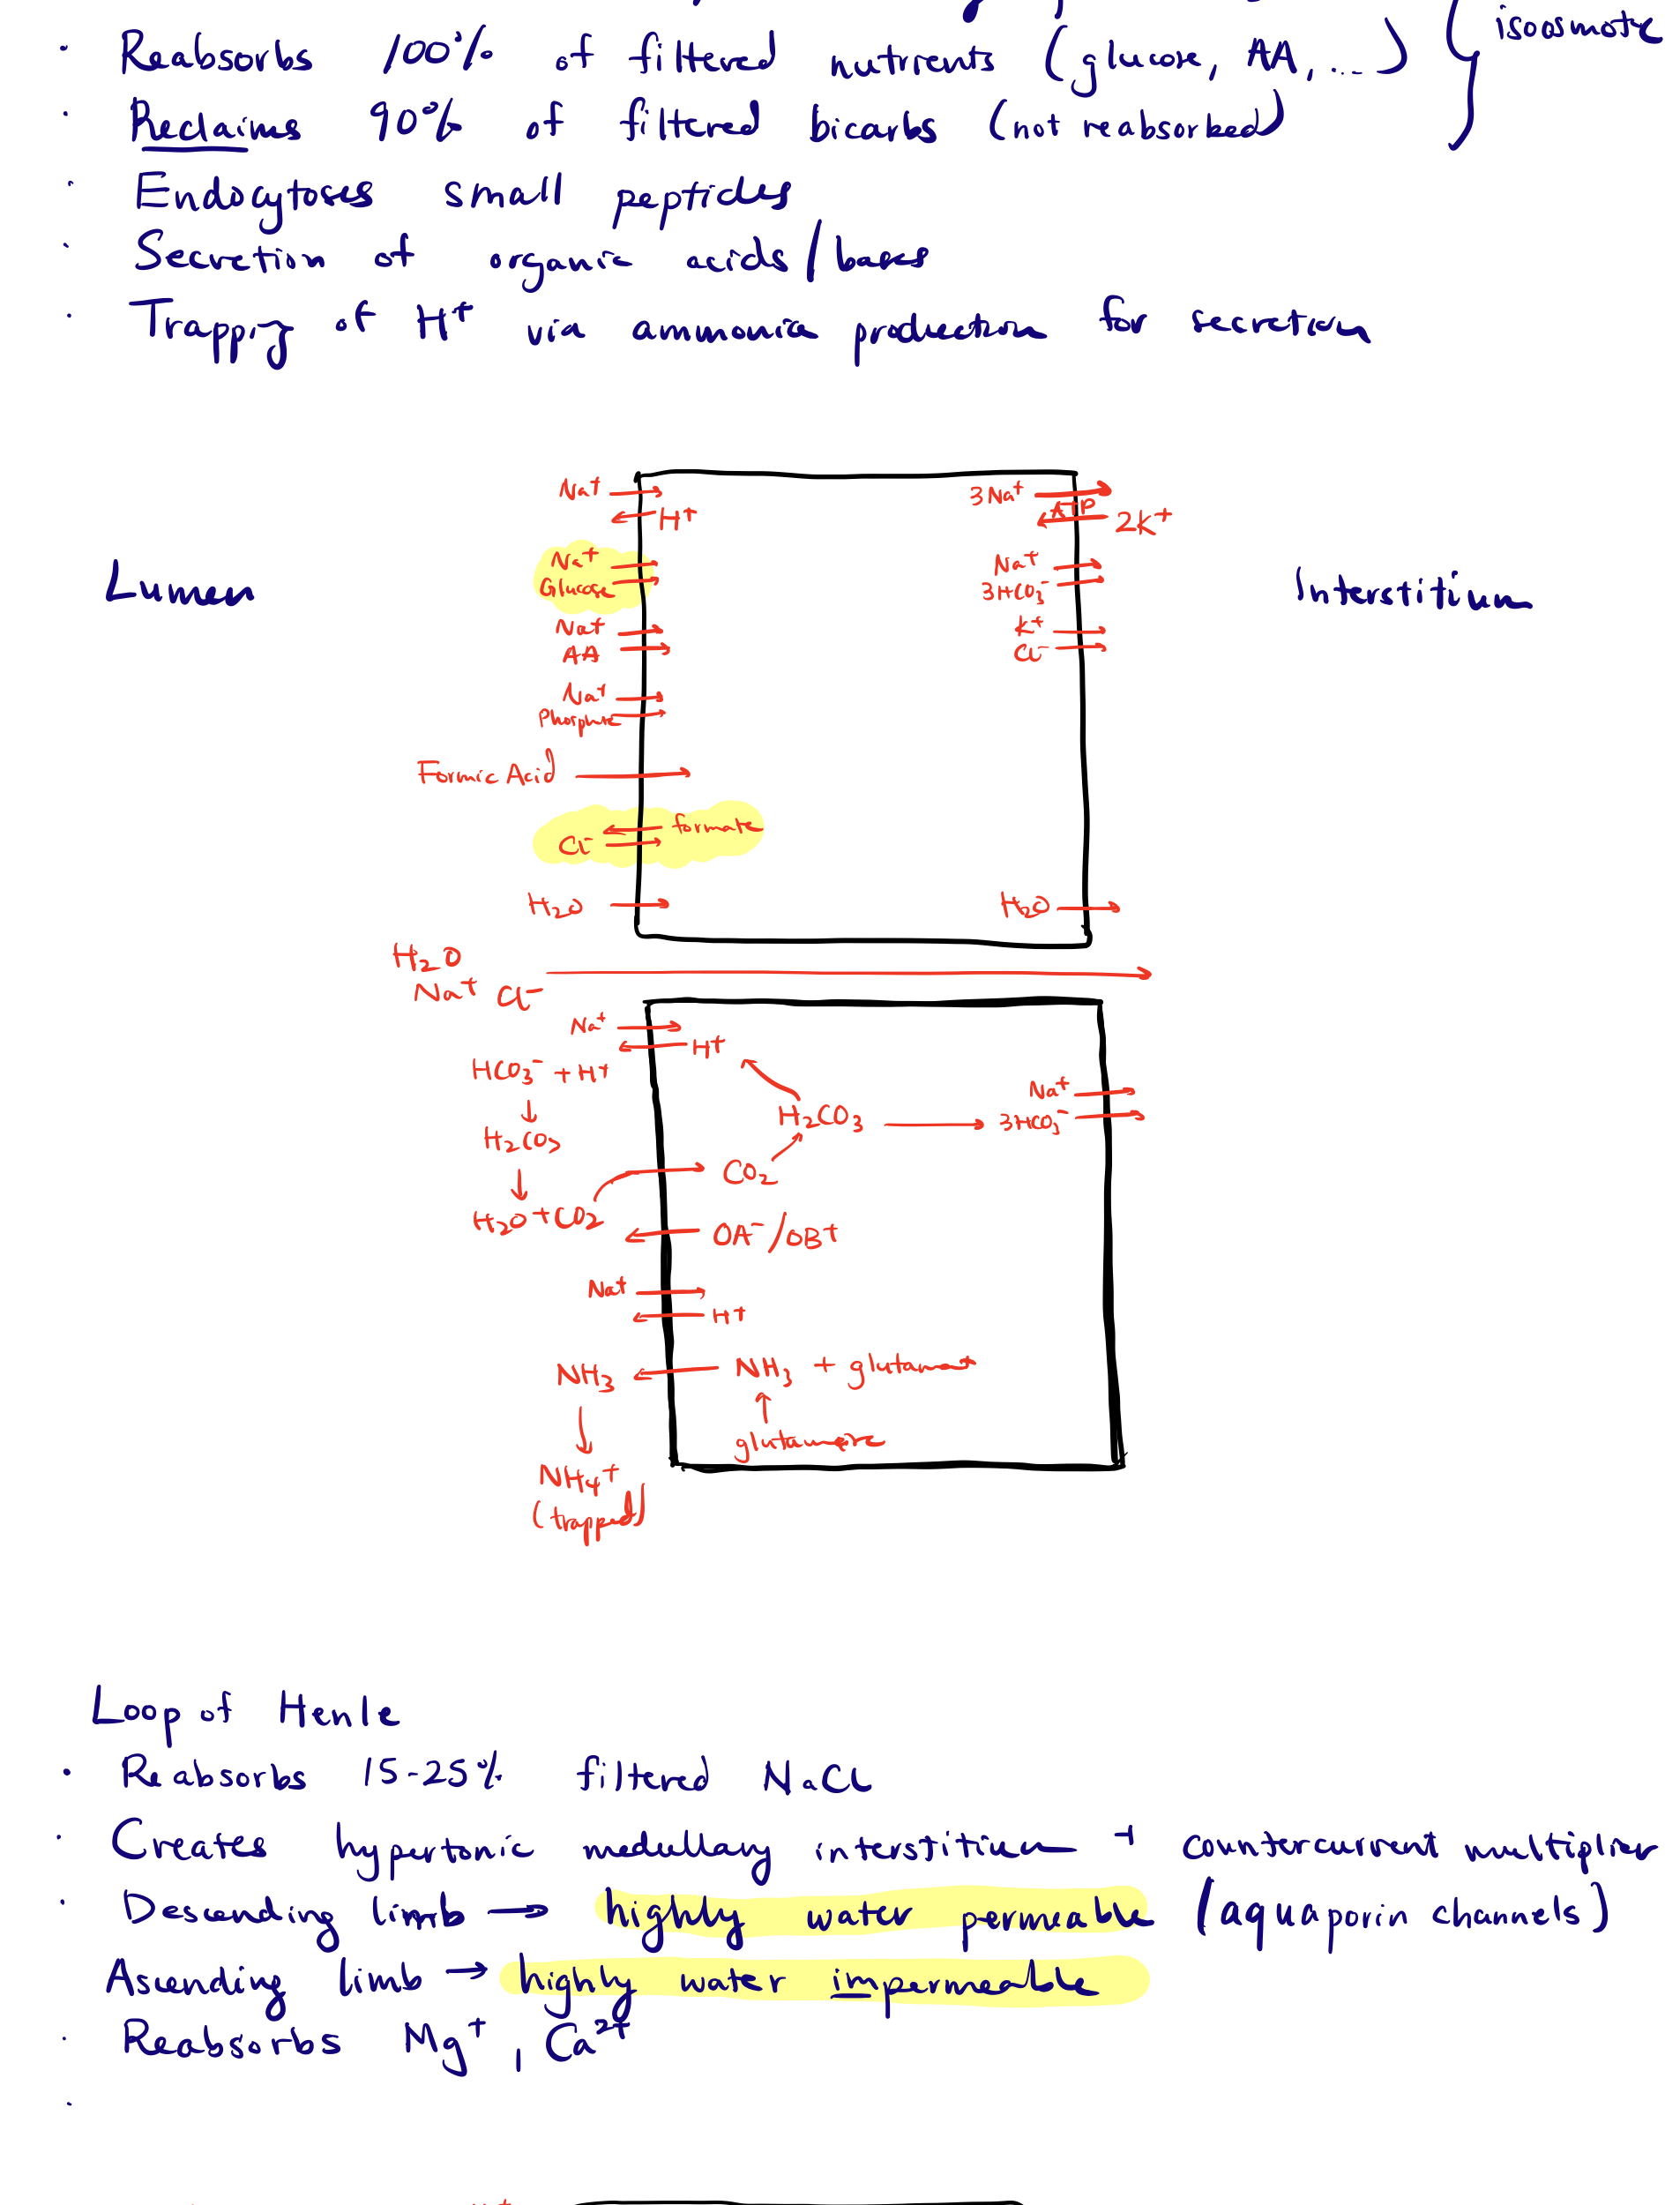 isoosmotic
· Reabsorbs 100% of filtered nutrients (glucose, AA, ...)
· Reclaims 90% of filtered bicarbs (not reabsorbed)
· Endocytoses small peptides
· Secretion of organic acids/bases
· Trapping of H⁺ via ammonia production for secretion
Na⁺
H⁺
3Na⁺
ATP
2K⁺
Na⁺
Glucose
Na⁺
3HCO₃⁻
Lumen
Interstitium
Na⁺
AA
K⁺
Cl⁻
Na⁺
Phosphate
Formic Acid
formate
Cl⁻
H₂O
H₂O
H₂O
Na⁺ Cl⁻
Na⁺
H⁺
HCO₃⁻ + H⁺
H₂CO₃
Na⁺
3HCO₃⁻
H₂CO₃
CO₂
H₂O + CO₂
OA⁻/OB⁺
Na⁺
H⁺
NH₃
NH₃ + glutamate
glutamine
NH₄⁺
(trapped)
Loop of Henle
· Reabsorbs 15-25% filtered NaCl
· Creates hypertonic medullary interstitium + countercurrent multiplier
· Descending limb → highly water permeable (aquaporin channels)
Ascending limb → highly water impermeable
· Reabsorbs Mg⁺, Ca²⁺
·